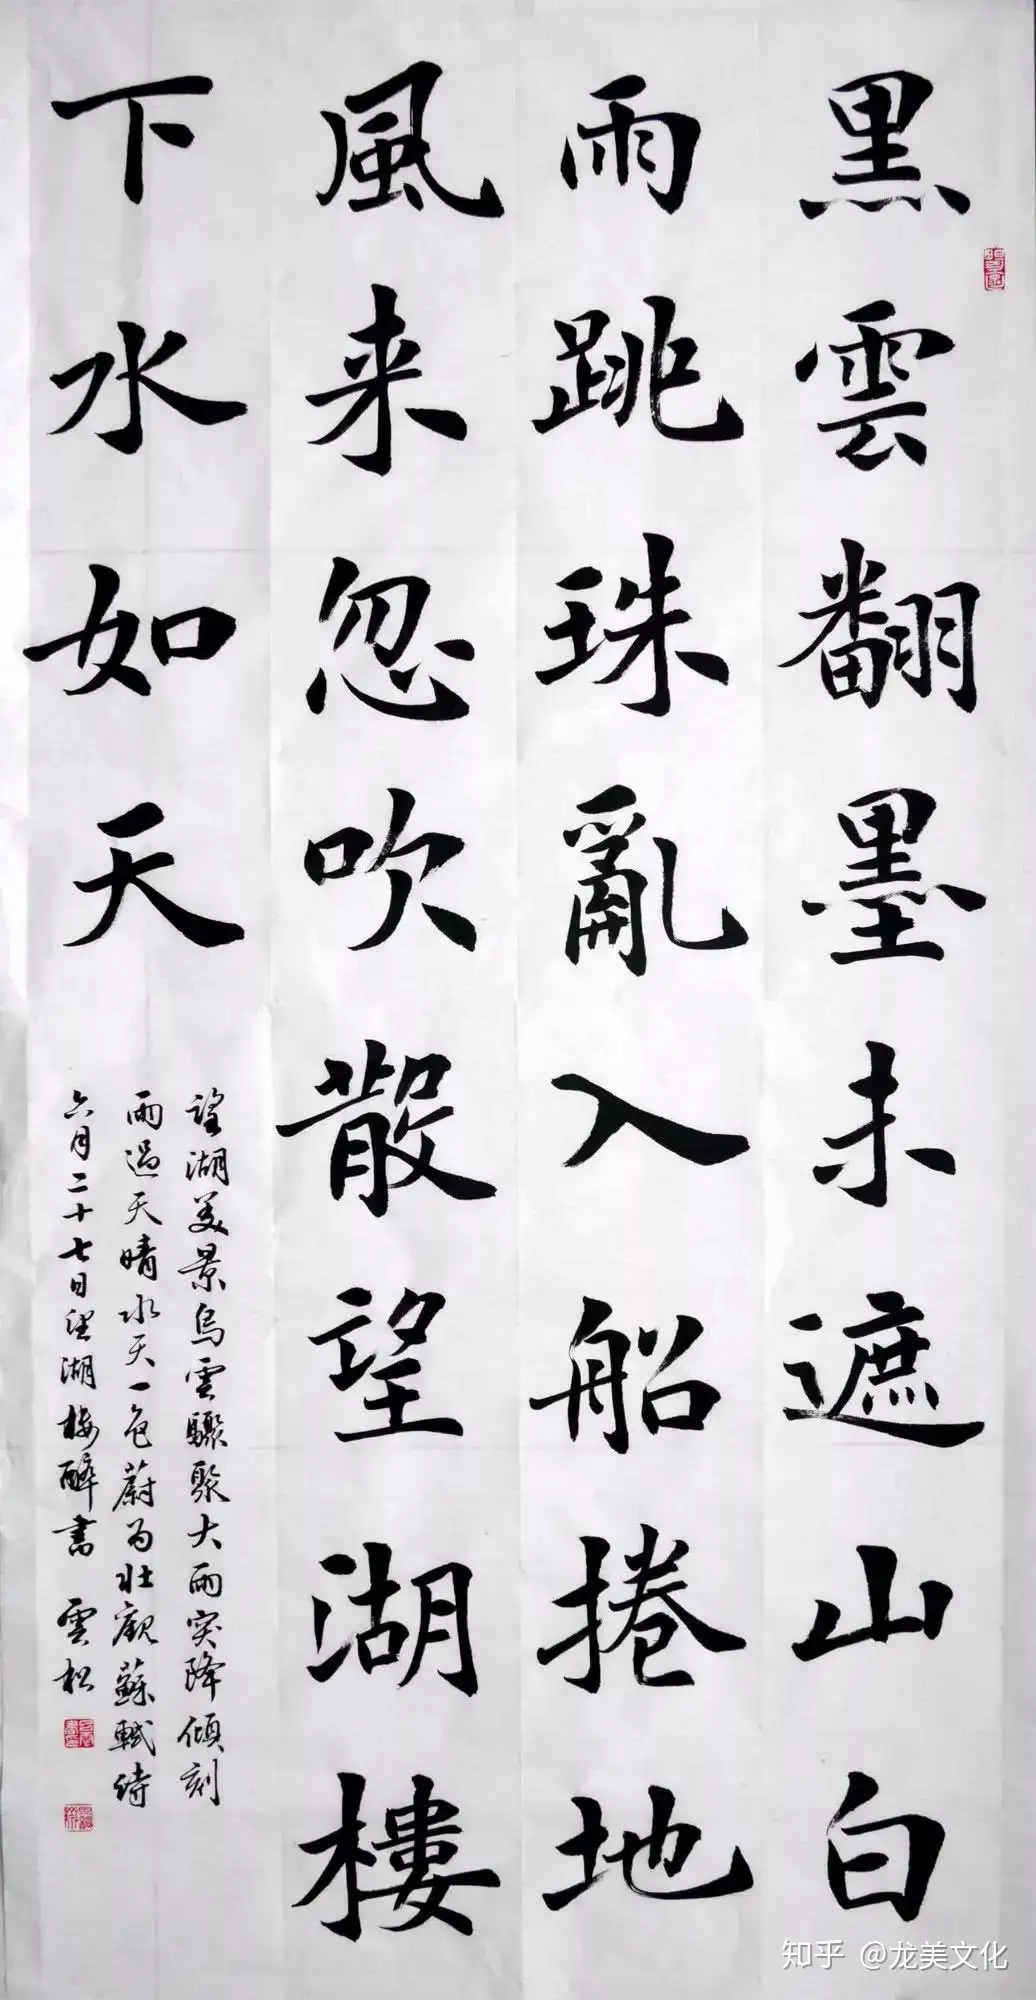 黑雲翻墨未遮山白
雨跳珠亂入船捲地
風来忽吹散望湖樓
下水如天
望湖美景烏雲驟聚大雨突降傾刻
雨過天晴水天一色蔚为壮觀蘇軾诗
六月二十七日望湖楼醉書 雲松
知乎 @龙美文化